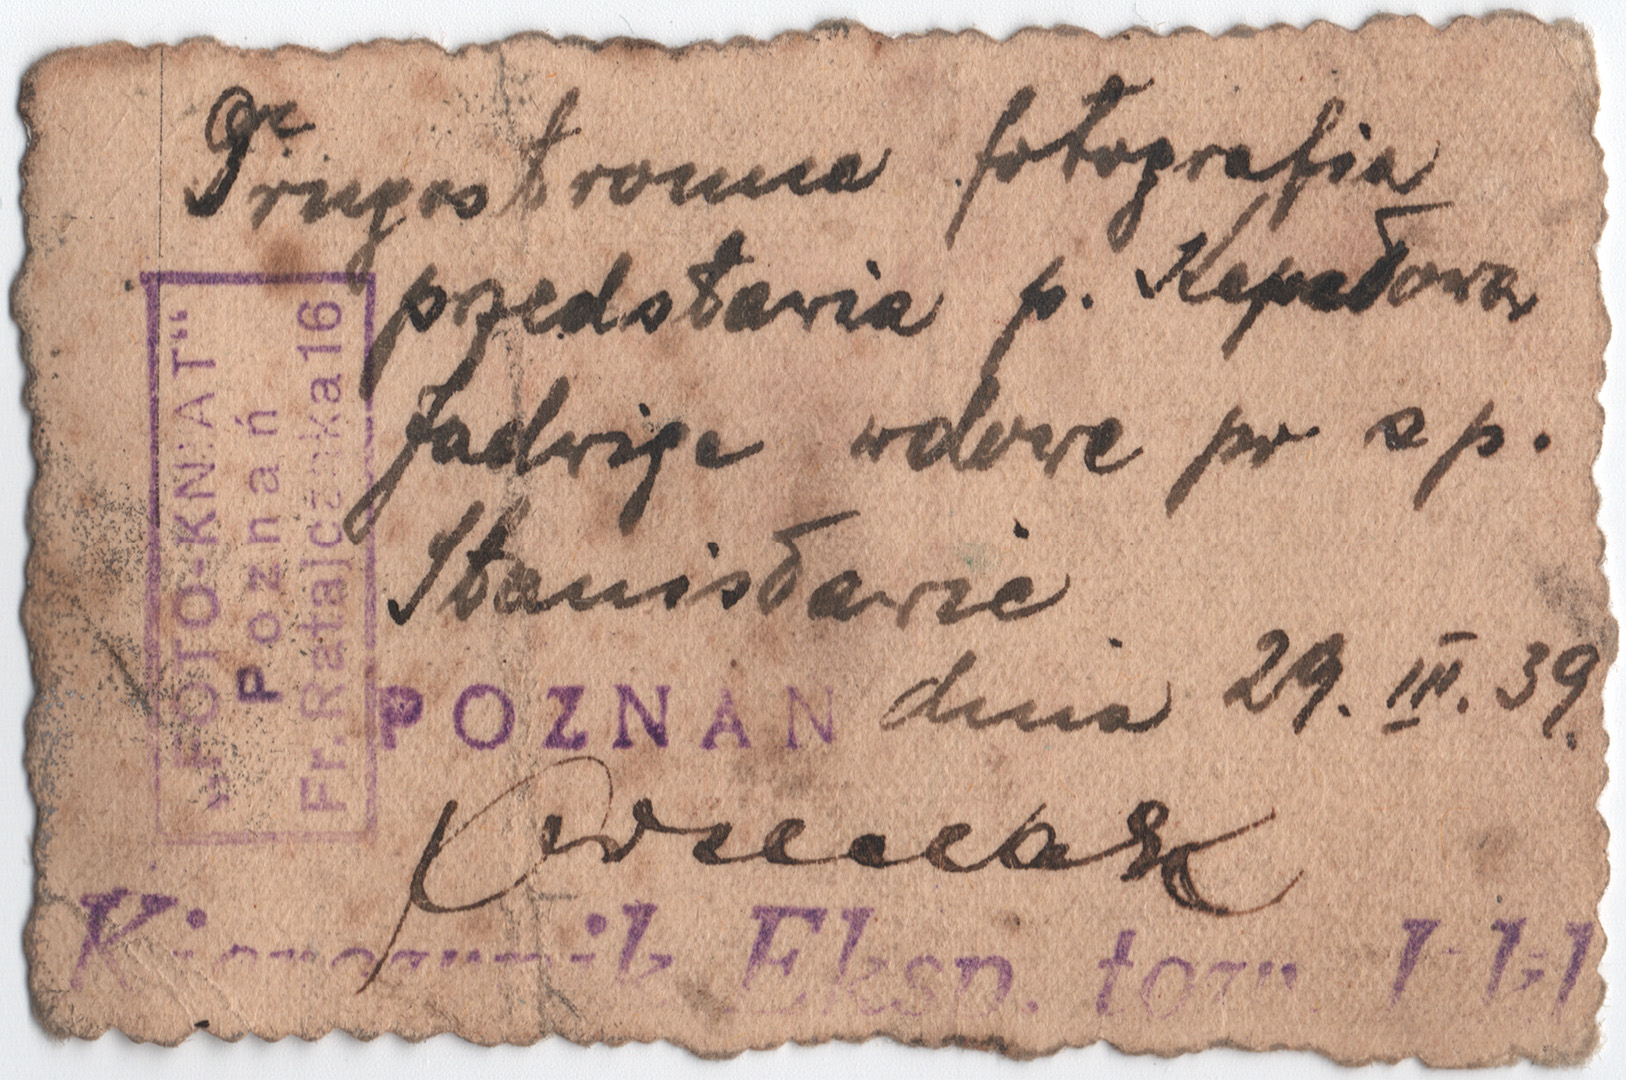 Drugostronna fotografia
przedstawia p. Kapałową
Jadwigę wdowę po sp.
Stanisławie
POZNAN dnia 29. III. 39.
Kierownik Eksp. tow. I kl
„FOTO-KNAT“
Poznań
Fr. Ratajczaka 16